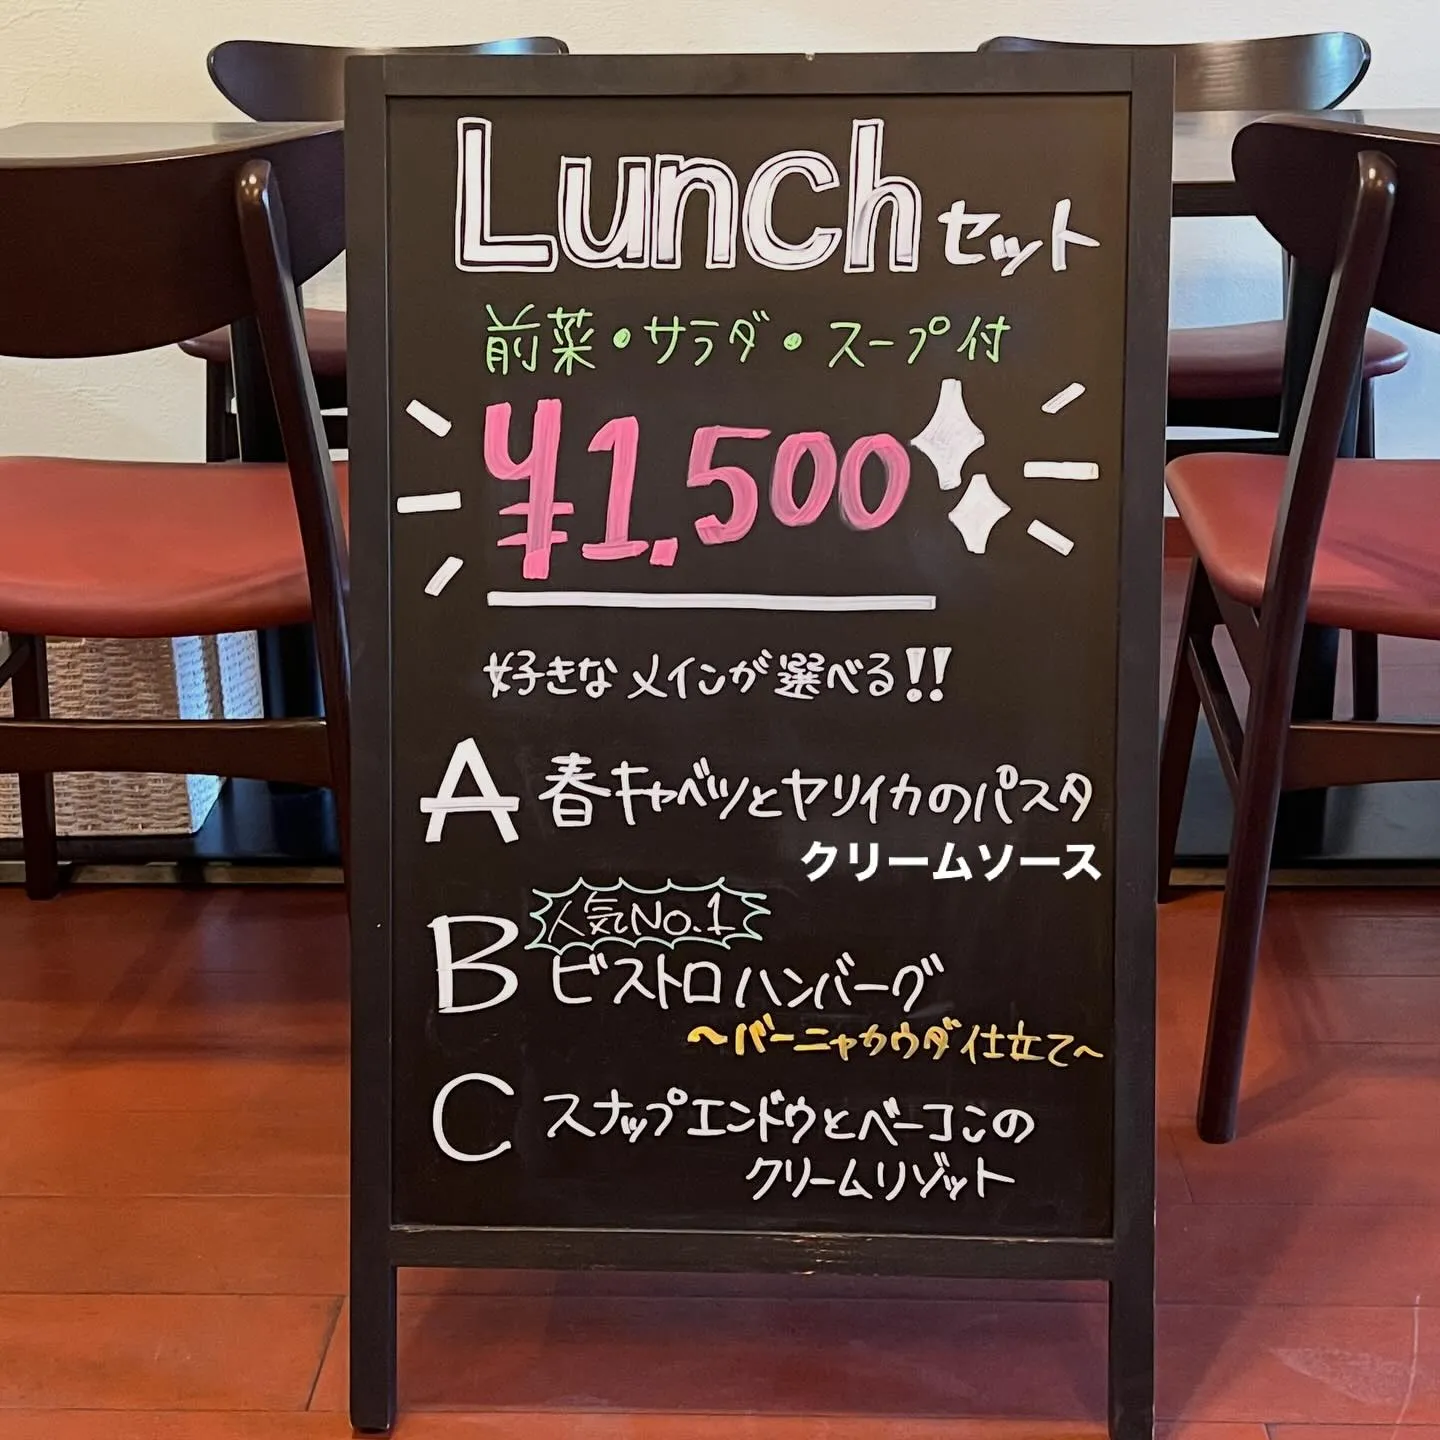 Lunch セット
前菜・サラダ・スープ付
¥1,500
好きなメインが選べる!!
A 春キャベツとヤリイカのパスタ
クリームソース
人気No.1
B ビストロハンバーグ
~バーニャカウダ仕立て~
C スナップエンドウとベーコンの
クリームリゾット